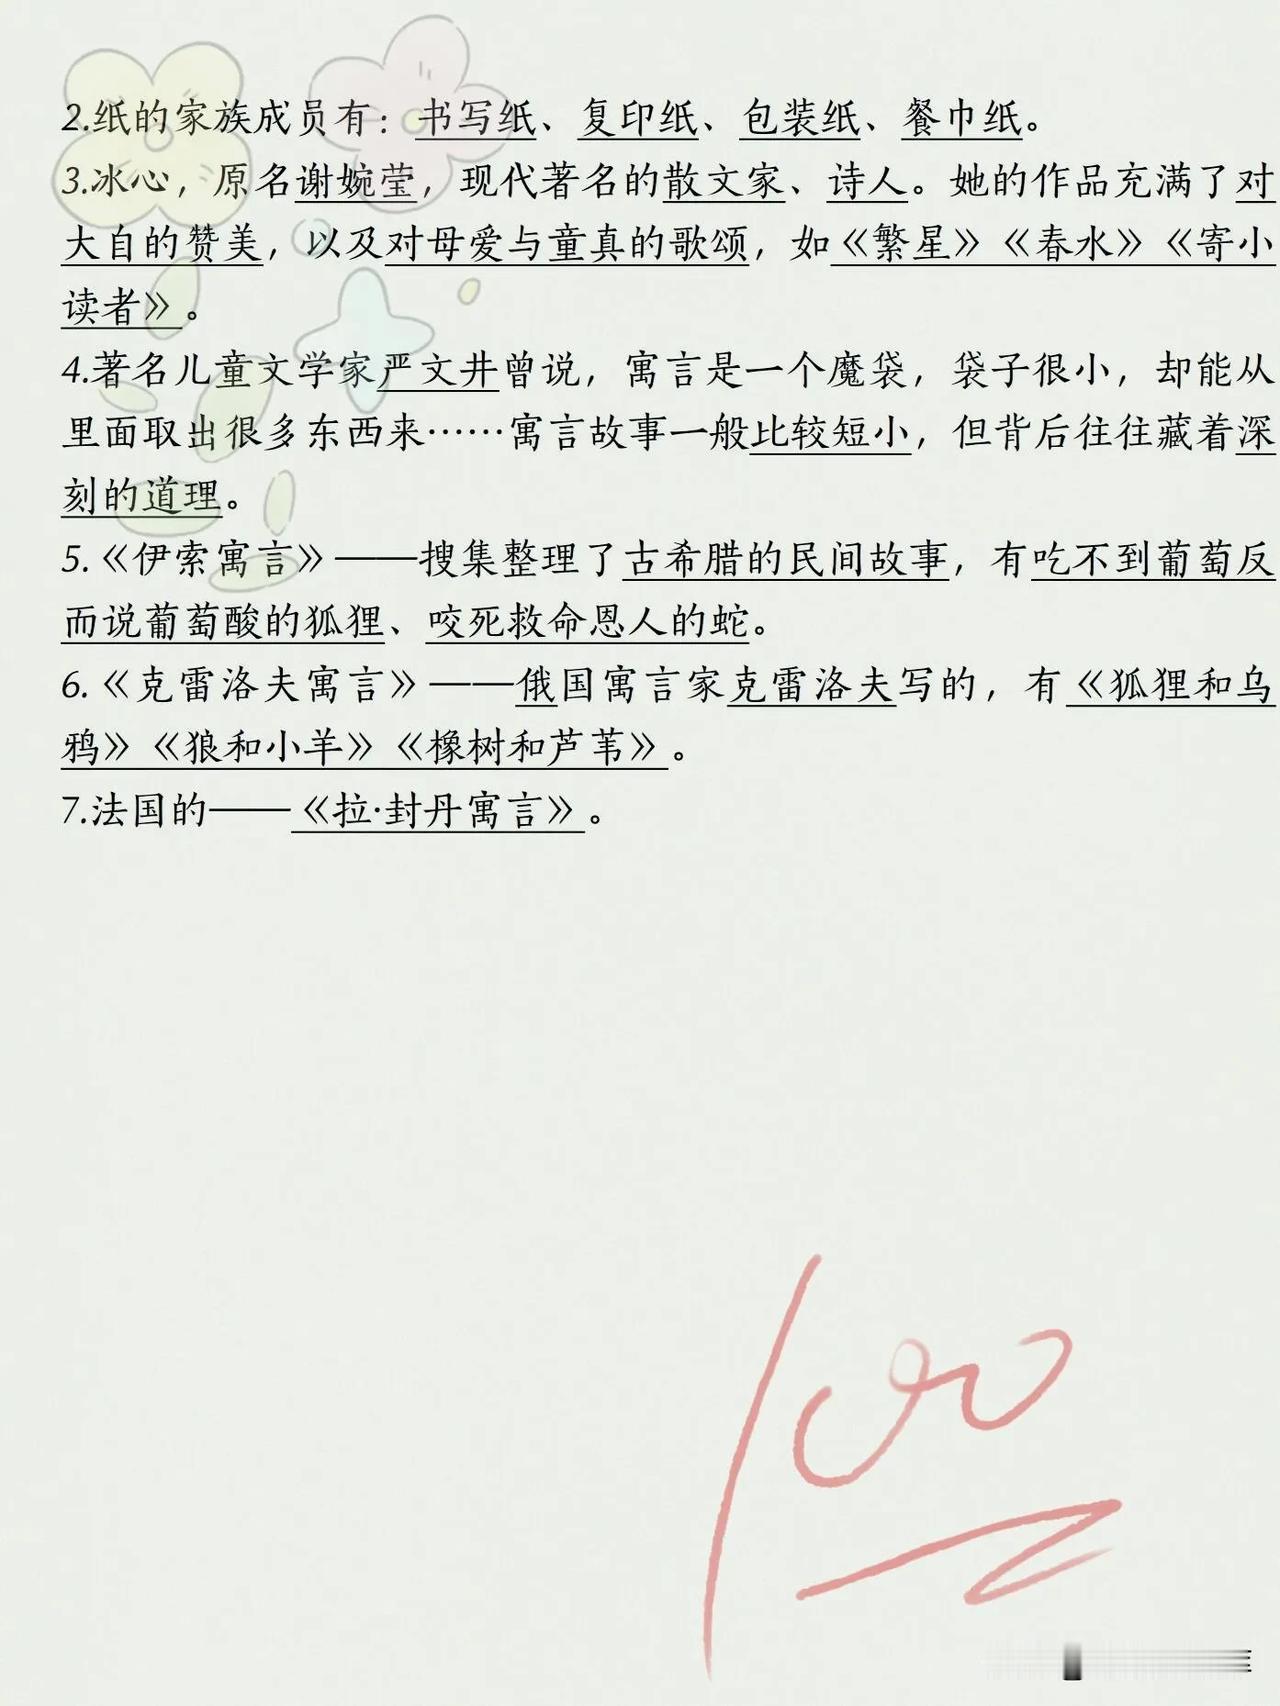 2.纸的家族成员有：书写纸、复印纸、包装纸、餐巾纸。
3.冰心，原名谢婉莹，现代著名的散文家、诗人。她的作品充满了对
大自的赞美，以及对母爱与童真的歌颂，如《繁星》《春水》《寄小
读者》。
4.著名儿童文学家严文井曾说，寓言是一个魔袋，袋子很小，却能从
里面取出很多东西来……寓言故事一般比较短小，但背后往往藏着深
刻的道理。
5.《伊索寓言》——搜集整理了古希腊的民间故事，有吃不到葡萄反
而说葡萄酸的狐狸、咬死救命恩人的蛇。
6.《克雷洛夫寓言》——俄国寓言家克雷洛夫写的，有《狐狸和乌
鸦》《狼和小羊》《橡树和芦苇》。
7.法国的——《拉·封丹寓言》。
100